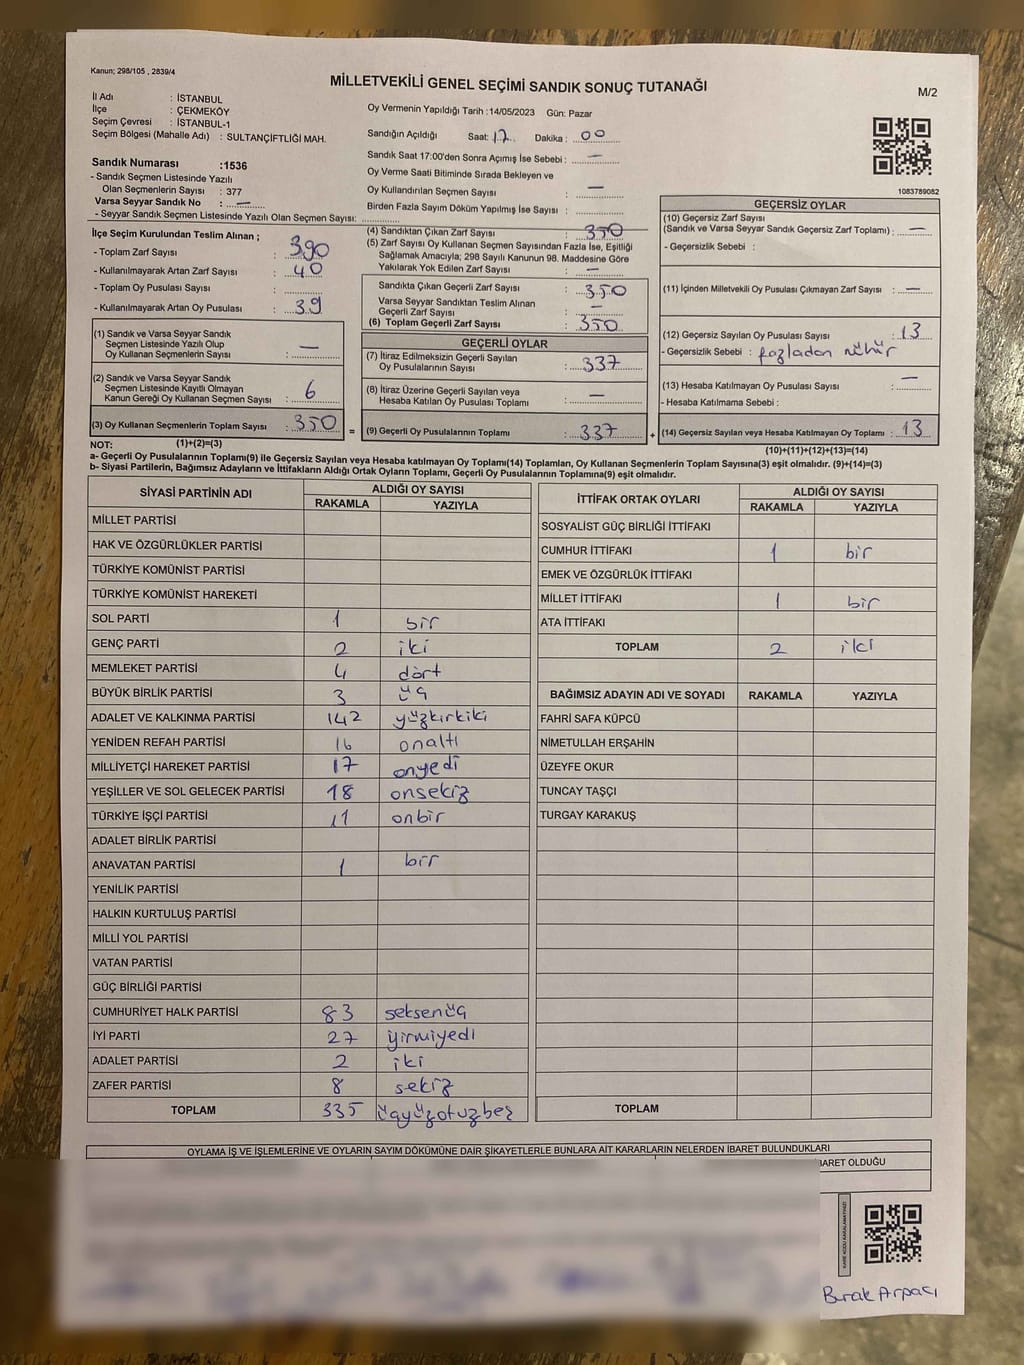 Kanun; 298/105 , 2839/4
MİLLETVEKİLİ GENEL SEÇİMİ SANDIK SONUÇ TUTANAĞI
M/2
İl Adı : İSTANBUL
İlçe : ÇEKMEKÖY
Seçim Çevresi : İSTANBUL-1
Seçim Bölgesi (Mahalle Adı) : SULTANÇİFTLİĞİ MAH.
Sandık Numarası :1536
- Sandık Seçmen Listesinde Yazılı
Olan Seçmenlerin Sayısı : 377
Varsa Seyyar Sandık No : —
- Seyyar Sandık Seçmen Listesinde Yazılı Olan Seçmen Sayısı: ............
Oy Vermenin Yapıldığı Tarih :14/05/2023 Gün: Pazar
Sandığın Açıldığı Saat: 17 Dakika : 00
Sandık Saat 17:00'den Sonra Açımış İse Sebebi : —
Oy Verme Saati Bitiminde Sırada Bekleyen ve
Oy Kullandırılan Seçmen Sayısı : —
Birden Fazla Sayım Döküm Yapılmış İse Sayısı : ............
1083789082
İlçe Seçim Kurulundan Teslim Alınan ;
- Toplam Zarf Sayısı : 390
- Kullanılmayarak Artan Zarf Sayısı : 40
- Toplam Oy Pusulası Sayısı : ............
- Kullanılmayarak Artan Oy Pusulası : 39
(1) Sandık ve Varsa Seyyar Sandık
Seçmen Listesinde Yazılı Olup
Oy Kullanan Seçmenlerin Sayısı : —
(2) Sandık ve Varsa Seyyar Sandık
Seçmen Listesinde Kayıtlı Olmayan
Kanun Gereği Oy Kullanan Seçmen Sayısı : 6
(3) Oy Kullanan Seçmenlerin Toplam Sayısı : 350
(4) Sandıktan Çıkan Zarf Sayısı : 350
(5) Zarf Sayısı Oy Kullanan Seçmen Sayısından Fazla İse, Eşitliği
Sağlamak Amacıyla; 298 Sayılı Kanunun 98. Maddesine Göre
Yakılarak Yok Edilen Zarf Sayısı : —
Sandıkta Çıkan Geçerli Zarf Sayısı : 350
Varsa Seyyar Sandıktan Teslim Alınan
Geçerli Zarf Sayısı : —
(6) Toplam Geçerli Zarf Sayısı : 350
GEÇERLİ OYLAR
(7) İtiraz Edilmeksizin Geçerli Sayılan
Oy Pusulalarının Sayısı : 337
(8) İtiraz Üzerine Geçerli Sayılan veya
Hesaba Katılan Oy Pusulası Toplamı : —
= (9) Geçerli Oy Pusulalarının Toplamı : 337
GEÇERSİZ OYLAR
(10) Geçersiz Zarf Sayısı
(Sandık ve Varsa Seyyar Sandık Geçersiz Zarf Toplamı) : —
- Geçersizlik Sebebi :
(11) İçinden Milletvekili Oy Pusulası Çıkmayan Zarf Sayısı : —
(12) Geçersiz Sayılan Oy Pusulası Sayısı : 13
- Geçersizlik Sebebi : fazladan mühür
(13) Hesaba Katılmayan Oy Pusulası Sayısı : —
- Hesaba Katılmama Sebebi :
+ (14) Geçersiz Sayılan veya Hesaba Katılmayan Oy Toplamı : 13
NOT: (1)+(2)=(3)
(10)+(11)+(12)+(13)=(14)
a- Geçerli Oy Pusulalarının Toplamı(9) ile Geçersiz Sayılan veya Hesaba katılmayan Oy Toplamı(14) Toplamları, Oy Kullanan Seçmenlerin Toplam Sayısına(3) eşit olmalıdır. (9)+(14)=(3)
b- Siyasi Partilerin, Bağımsız Adayların ve İttifakların Aldığı Ortak Oyların Toplamı, Geçerli Oy Pusulalarının Toplamına(9) eşit olmalıdır.
SİYASİ PARTİNİN ADI ALDIĞI OY SAYISI
RAKAMLA YAZIYLA
MİLLET PARTİSİ
HAK VE ÖZGÜRLÜKLER PARTİSİ
TÜRKİYE KOMÜNİST PARTİSİ
TÜRKİYE KOMÜNİST HAREKETİ
SOL PARTİ 1 bir
GENÇ PARTİ 2 iki
MEMLEKET PARTİSİ 4 dört
BÜYÜK BİRLİK PARTİSİ 3 üç
ADALET VE KALKINMA PARTİSİ 142 yüzkırkiki
YENİDEN REFAH PARTİSİ 16 onaltı
MİLLİYETÇİ HAREKET PARTİSİ 17 onyedi
YEŞİLLER VE SOL GELECEK PARTİSİ 18 onsekiz
TÜRKİYE İŞÇİ PARTİSİ 11 onbir
ADALET BİRLİK PARTİSİ
ANAVATAN PARTİSİ 1 bir
YENİLİK PARTİSİ
HALKIN KURTULUŞ PARTİSİ
MİLLİ YOL PARTİSİ
VATAN PARTİSİ
GÜÇ BİRLİĞİ PARTİSİ
CUMHURİYET HALK PARTİSİ 83 seksenüç
İYİ PARTİ 27 yirmiyedi
ADALET PARTİSİ 2 iki
ZAFER PARTİSİ 8 sekiz
TOPLAM 335 üçyüzotuzbeş
İTTİFAK ORTAK OYLARI ALDIĞI OY SAYISI
RAKAMLA YAZIYLA
SOSYALİST GÜÇ BİRLİĞİ İTTİFAKI
CUMHUR İTTİFAKI 1 bir
EMEK VE ÖZGÜRLÜK İTTİFAKI
MİLLET İTTİFAKI 1 bir
ATA İTTİFAKI
TOPLAM 2 iki
BAĞIMSIZ ADAYIN ADI VE SOYADI RAKAMLA YAZIYLA
FAHRİ SAFA KÜPCÜ
NİMETULLAH ERŞAHİN
ÜZEYFE OKUR
TUNCAY TAŞÇI
TURGAY KARAKUŞ
TOPLAM
OYLAMA İŞ VE İŞLEMLERİNE VE OYLARIN SAYIM DÖKÜMÜNE DAİR ŞİKAYETLERLE BUNLARA AİT KARARLARIN NELERDEN İBARET BULUNDUKLARI
BARET OLDUĞU
KARE KODU KARALAMAYINIZ!
Burak Arpacı